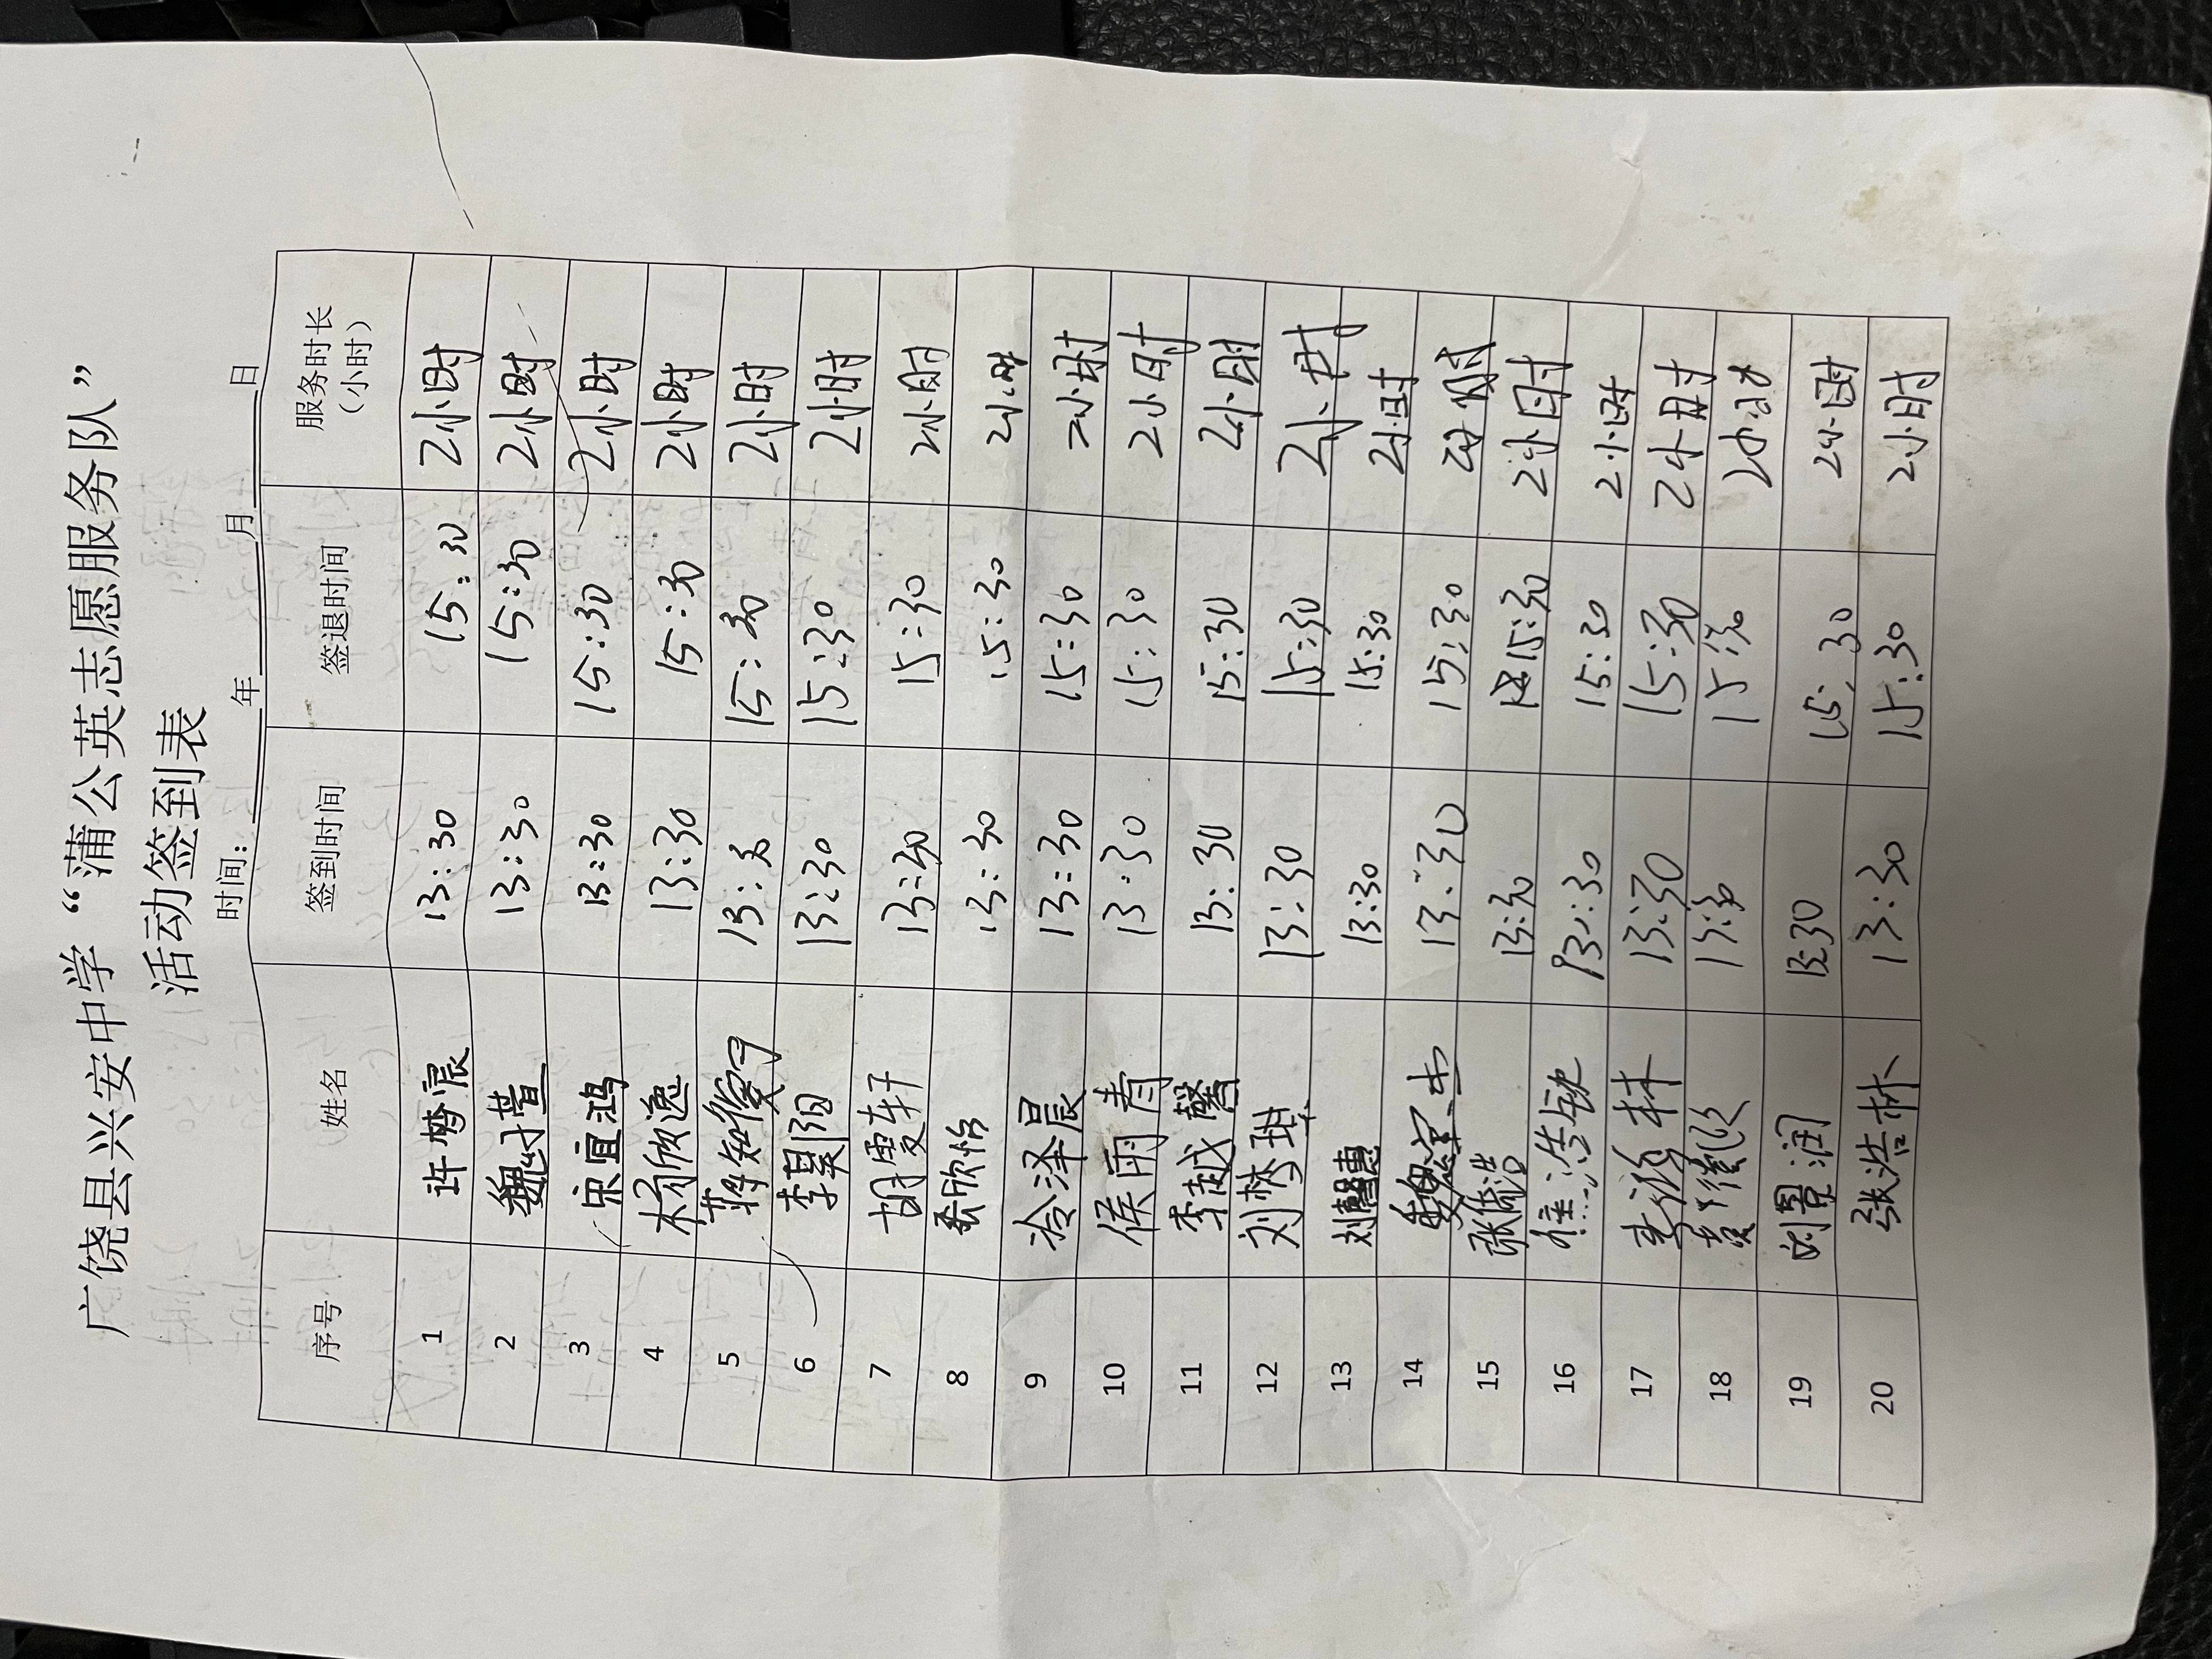 广饶县兴安中学“蒲公英志愿服务队”
活动签到表
时间：年月日
序号 姓名 签到时间 签退时间 服务时长（小时）
1 许梦宸 13:30 15:30 2小时
2 13:30 15:30 2小时
3 宋宜鸿 13:30 15:30 2小时
4 杨欣逸 13:30 15:30 2小时
5 蒋知 13:30 15:30 2小时
6 李昊阳 13:30 15:30 2小时
7 胡雯轩 13:30 15:30 2小时
8 欣怡 13:30 15:30 2小时
9 泽晨 13:30 15:30 2小时
10 侯雨 13:30 15:30 2小时
11 李越馨 13:30 15:30 2小时
12 刘梦琪 13:30 15:30 2小时
13 刘馨惠 13:30 15:30 2小时
14 13:30 15:30 2小时
15 张浩 13:30 15:30 2小时
16 浩 13:30 15:30 2小时
17 李 13:30 15:30 2小时
18 13:30 15:30 2小时
19 刘景润 13:30 15:30 2小时
20 张浩林 13:30 15:30 2小时